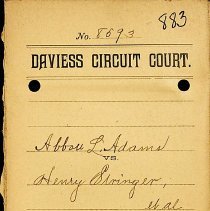 883
No. 8693
DAVIESS CIRCUIT COURT.
Abbott L. Adams
VS.
Henry Stringer,
et al